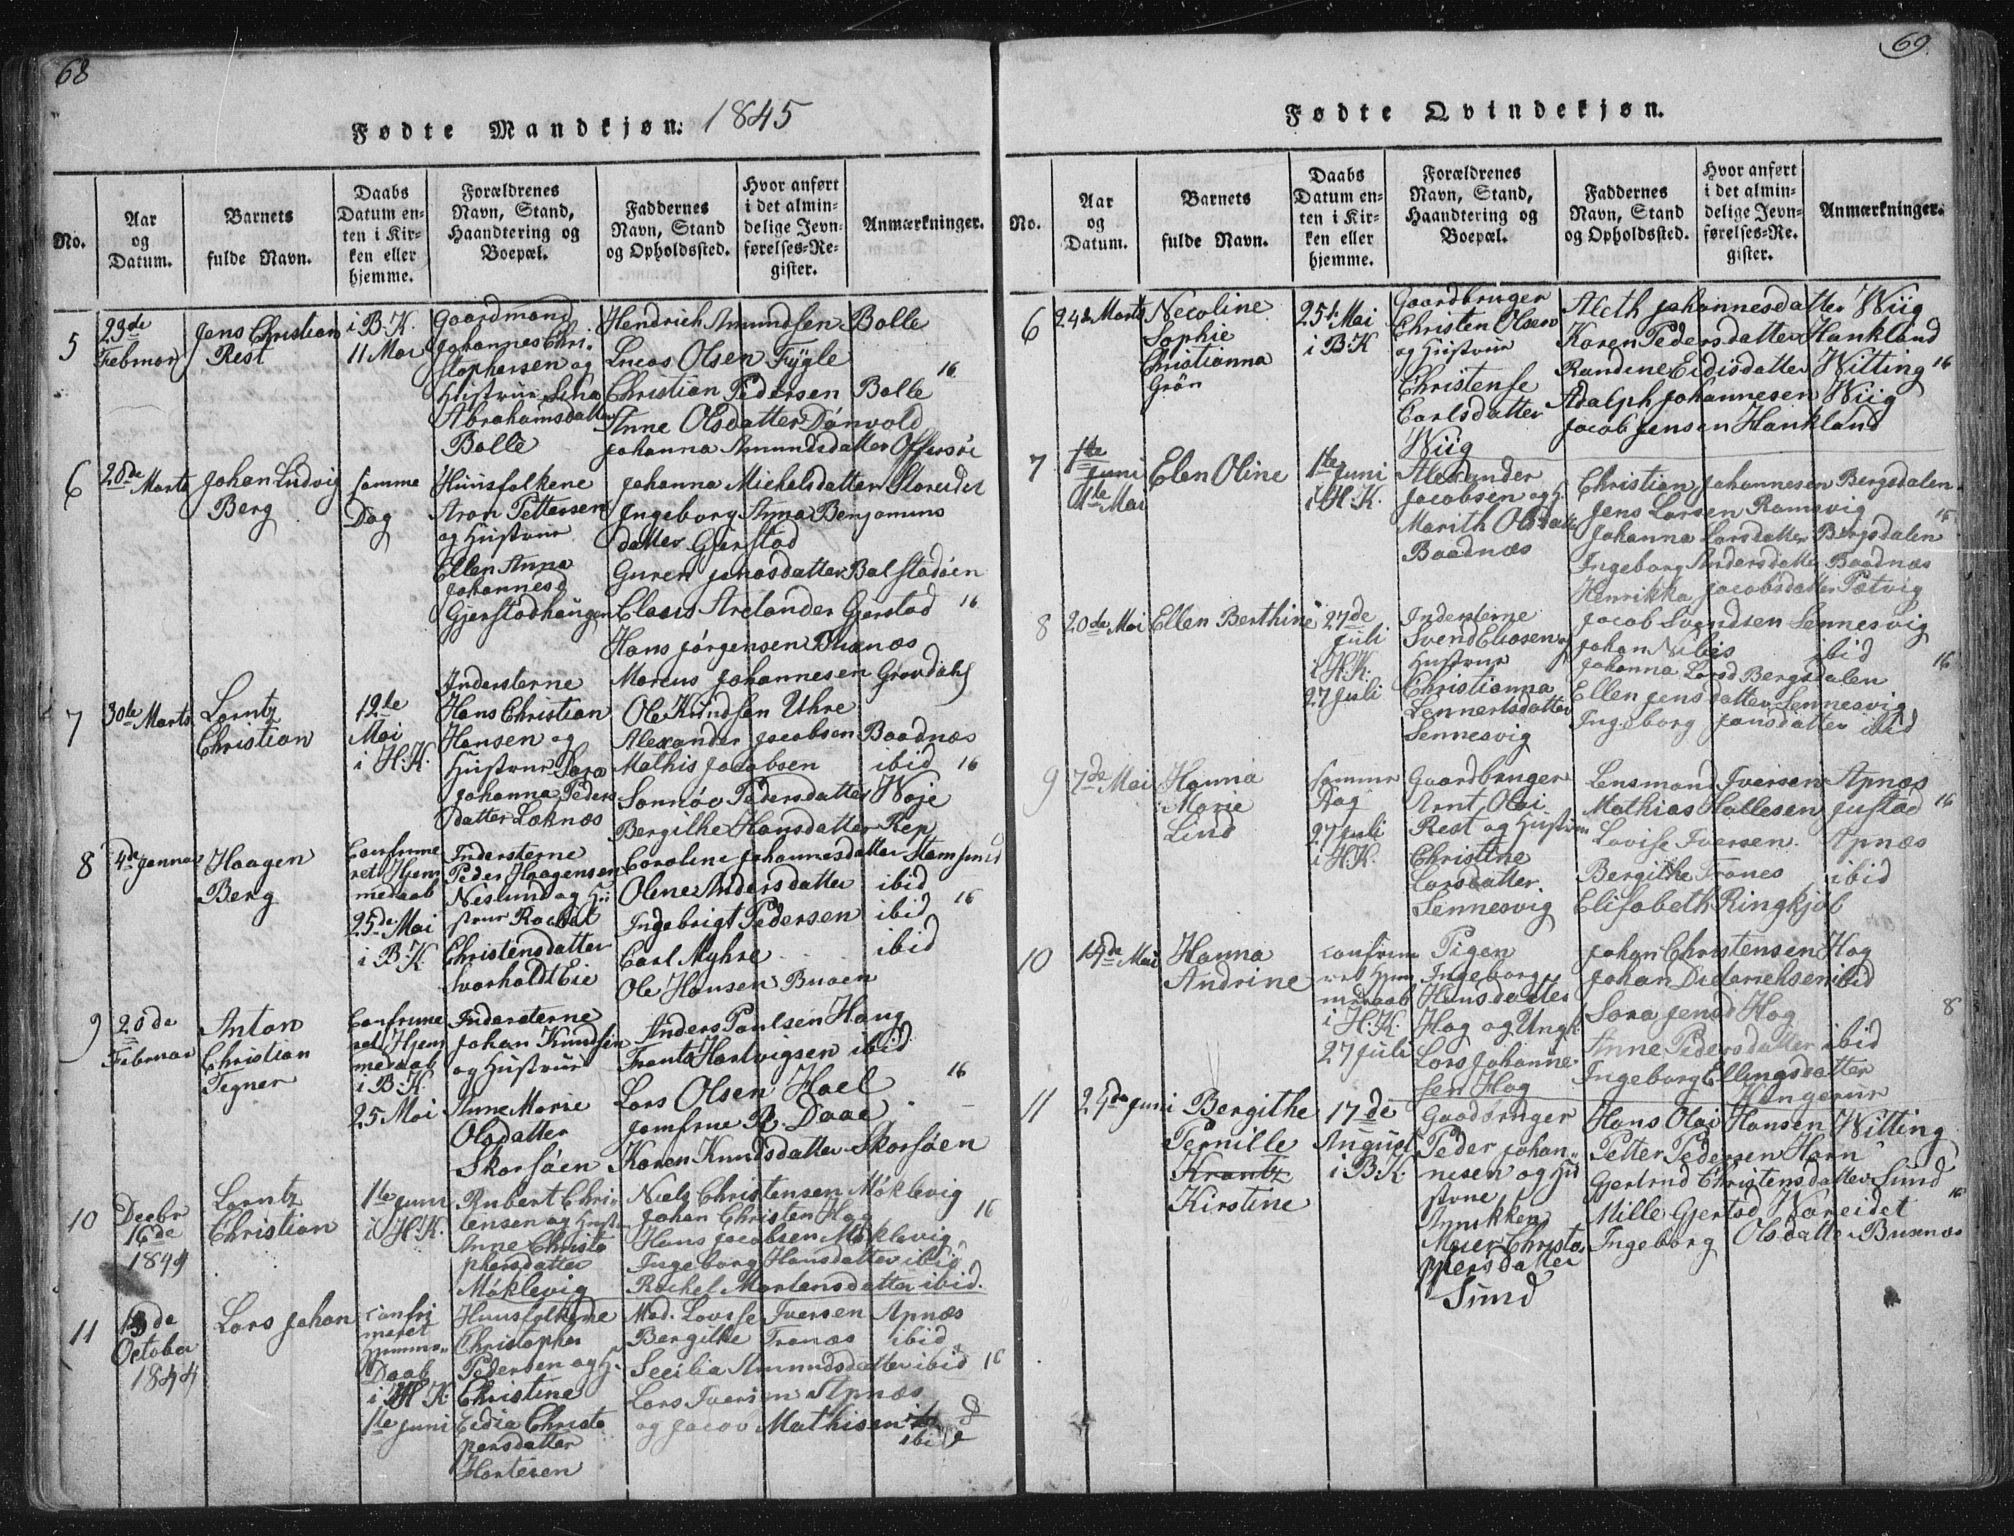 68
Fødte Mandkjøn: 1845
No.
Aar
og
Datum.
Barnets
fulde Navn.
Daabs
Datum en-
ten i Kir-
ken eller
hjemme.
Forældrenes
Navn, Stand,
Haandtering og
Boepæl.
Faddernes
Navn, Stand
og Opholdssted.
Hvor anført
i det almin-
delige Jevn-
førelses-Re-
gister.
Anmærkninger.
5
23de
Februar
Jens Christian
Rest
i B.K.
11 Mai
Gaardmand
Johannes Chri-
stophersen og
Hustrue Sina
Abrahamsdatter
Bolle
Hendrich Amundsen Bolle
Lucas Olsen Fygle
Christian Pedersen Bolle
Anne Olsdatter Dønvold
Johanna Amundsdatter Offersøe
16
6
28de Marts
Johan Ludvig
Berg
samme
Dag
Huusfolkene
Aron Pettersen
og Hustrue
Ellen Anna
Johannesd
Gjerstadhaugen
Johanna Michelsdatter Storeidet
Ingeborg Anna Benjamins
datter Gjerstad
Guren Jonasdatter Balstadøen
Claus Arelander Gjerstad 16
Hans Jørgensen Buxnæs
7
30te Marts
Lorntz
Christian
12te
Mai
i H.K.
Inderterne
Hans Christian
Hansen og
Hustrue Sara
Johanna Peders
datter Leknæs
Marcus Johannesen Grøvdahl
Ole Knudsen Uhre
Alexander Jacobsen Baadnæs
Mathis Jacobsen ibid 16
Sonnøv Pedersdatter Woje
Bergithe Hansdatter Rep
8
4de Januar
Haagen
Berg
Confirme
ret Hjem
medaab
25de Mai
i B.K.
Indersterne
Peder Haagensen
Neslund og Hu
strue Rachel
Christensdatter
Svarholdt Eie
Caroline Johannesdatter Stamsund
Oline Andersdatter ibid
Ingebrigt Pedersen ibid
Carl Myhre ibid
Ole Hansen Buøen
16
9
20de
Februar
Anton
Christian
Tegner
Confirme
ret Hjem
medaab
i B.K.
25 Mai
Indersterne
Johan Knudsen
og Hustrue
Anne Marie
Olsdatter
Skorsøen
Anders Paulsen Haug
Trents Hartvigsen ibid
Lars Olsen Hoel
Jomfrue R. Daae
Karen Knudsdatter Skorsøen
16
10
Decbr
16de
1844
Lorntz
Christian
1te Juni
i H.K.
Rubert Chri
stensen og Hustru
Anne Christo
phersdatter
Møklevig
Niels Christensen Møklevig
Johan Christen Hag
Hans Jacobsen Møklevig
Ingeborg Hansdatter ibid
Rachel Mortensdatter ibid.
16
11
13de
October
1844
Lars Johan
confir
meret
Hjemme-
Daab
i H.K.
1te Juni
Huusfolkene
Christopher
Pedersen og H.
Christine
Eidia Christo
persdatter
Hartesen
Mad. Lovise Iversen Apnæs
Bergithe Tranæs ibid
Secilia Amundsdatter ibid 16
Lars Iversen Apnæs
og Jacov Mathisen
ibid
69
Fødte Qvindekjøn.
No.
Aar
og
Datum.
Barnets
fulde Navn.
Daabs
Datum en-
ten i Kir-
ken eller
hjemme.
Forældrenes
Navn, Stand,
Haandtering og
Boepæl.
Faddernes
Navn, Stand
og Opholdssted.
Hvor anført
i det almin-
delige Jevn-
førelses-Re-
gister.
Anmærkninger.
6
24de Marts
Necoline
Sophie
Christianna
Grøn
25de Mai
i B.K
Gaardbruger
Christen Olsen
og Hustrue
Christense
Carlsdatter
Wiig
Aleth Johannesdatter Wiig
Karen Pedersdatter Hankland
Randine Eidisdatter Witting 16
Adalph Johannesen Wiig
Jacob Jensen Hankland
7
1te
Juni
4te Mai
Elen Oline
1te
Juni
i H.K.
Alexander
Jacobsen og H.
Marith Olsdatter
Baadnæs
Christian Johannesen Bergsdalen
Jens Larsen Ramsvig
Johanna Larsdatter Bergsdalen
Ingeborg Andersdatter Baadnæs
Henrikka Jacobsdatter Petvig
8
20de Mai
Ellen Berthine
27de
Juli
i H.K.
27 Juli
Indersterne
Svend Eliasen og
Hustrue
Christianna
Lennertsdatter
Sennesvig
Jacob Svendsen Sennesvig
Johan Nilsis ibid
Johanna Larsd Bergsdalen
Ellen Jensdatter Sennesvig
Ingeborg Jonsdatter ibid
16
9
7de Mai
Hanna
Marie
Lind
samme
Dag
27 Juli
i H.K.
Gaardbruger
Arnt Olai
Rest og Hustrue
Christine
Larsdatter
Sennesvig
Lensmand Iversen Apnæs
Mathias Hallesen Justad 16
Lovise Iversen. Apnæs
Bergithe Tranes ibid
Elisabeth Ringkjøb
10
14de Mai
Hanna
Andrine
confirm
ret Hjem
medaab
i H.K.
27 Juli
Pigen
Ingeborg
Hansdatter
Hag og Ungk
Lars Johanne-
sen Hag
Johan Christensen Hag
Johan Diderrehsen ibid
Sara Jensd Hag
Anne Pedersdatter ibid
Ingeborg Ellingsdatter
8
11
24de Juni
Bergithe
Pernille
Krantz
Kirstine
17de
August
i B.K.
Gaadbruger
Peder Johan-
nesen og Hu
strue
Annikken
Meier Christo
phersdatter
Sund
Hans Olai Hansen Witting
Petter Pedersen Horn
Gjertrud Christensdatter Sund
Mille Gjertsd Wareidet 16
Ingeborg Olsdatter Buxnæs